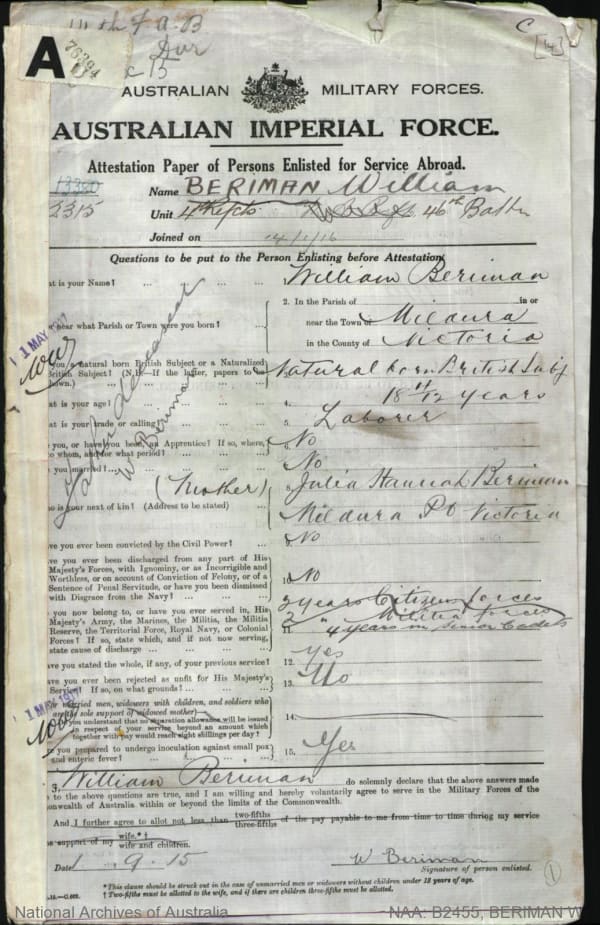 C
[4]
A
76394
C15
AUSTRALIAN MILITARY FORCES.
AUSTRALIAN IMPERIAL FORCE.
Attestation Paper of Persons Enlisted for Service Abroad.
13380
2315
Name BERIMAN William
Unit 46th Battn
Joined on 14/1/16
Questions to be put to the Person Enlisting before Attestation
at is your Name? William Beriman
2. In the Parish of in or
near what Parish or Town were you born? near the Town of Mildura
in the County of Victoria
1 MAY 1917
you a natural born British Subject or a Naturalized
British Subject? (N.B.—If the latter, papers to Natural born British Subj
own.)
at is your age? 4. 18 11/12 years
at is your trade or calling? 5. Laborer
you, or have you been, an Apprentice? If so, where, No
o whom, and for what period?
you married? No
(Mother) 8. Julia Hannah Beriman
o is your next of kin? (Address to be stated) Mildura PO Victoria
W Beriman
ve you ever been convicted by the Civil Power? 9. No
ve you ever been discharged from any part of His
Majesty's Forces, with Ignominy, or as Incorrigible and
Worthless, or on account of Conviction of Felony, or of a
Sentence of Penal Servitude, or have you been dismissed
with Disgrace from the Navy? 10. No
you now belong to, or have you ever served in, His
Majesty's Army, the Marines, the Militia, the Militia
Reserve, the Territorial Force, Royal Navy, or Colonial
Forces? If so, state which, and if not now serving,
state cause of discharge
2 years Citizen forces
2 " Militia forces
11. 4 years in Senior Cadets
ave you stated the whole, if any, of your previous service? 12. Yes
ave you ever been rejected as unfit for His Majesty's
Service? If so, on what grounds? 13. No
1 MAY 1917
married men, widowers with children, and soldiers who
are the sole support of widowed mother)—
you understand that no separation allowance will be issued
in respect of your service beyond an amount which
together with pay would reach eight shillings per day? 14.
re you prepared to undergo inoculation against small pox
and enteric fever? 15. Yes
William Beriman do solemnly declare that the above answers made
e to the above questions are true, and I am willing and hereby voluntarily agree to serve in the Military Forces of the
onwealth of Australia within or beyond the limits of the Commonwealth.
And I further agree to allot not less than two-fifths three-fifths of the pay payable to me from time to time during my service
e support of my wife.*† wife and children.
Date 1.9.15
W Beriman
Signature of person enlisted.
1
* This clause should be struck out in the case of unmarried men or widowers without children under 18 years of age.
† Two-fifths must be allotted to the wife, and if there are children three-fifths must be allotted.
National Archives of Australia
NAA: B2455, BERIMAN W